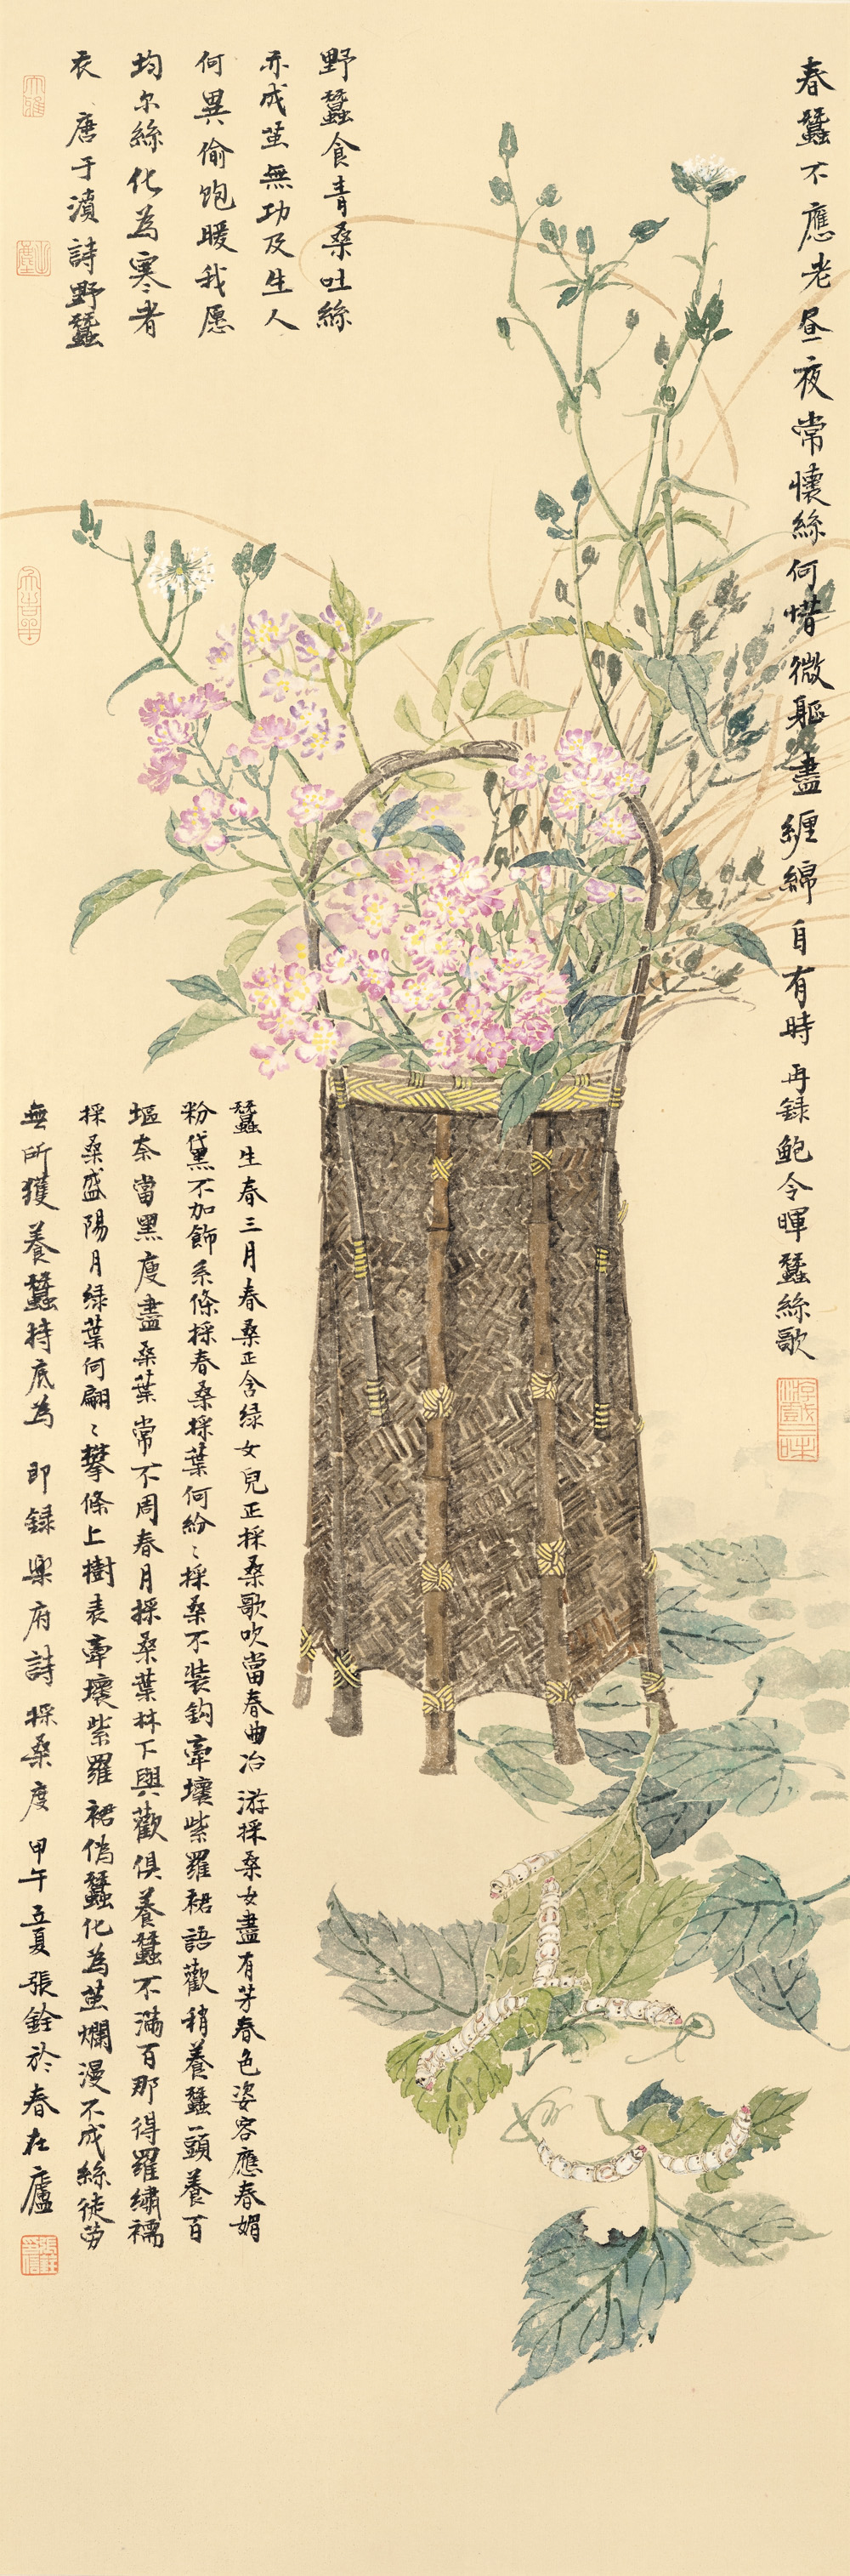 春蠶不應老昼夜常懷絲何惜微軀盡纏綿自有時 再録鮑令暉蠶絲歌
野蠶食青桑吐絲
亦成茧無功及生人
何異偷飽暖我愿
均尔絲化為寒者
衣 唐于濆詩野蠶
蠶生春三月春桑正含绿女兒正採桑歌吹當春曲冶游採桑女盡有芳春色姿容應春媚
粉黛不加飾系條採春桑採葉何紛〻採桑不装鈎牽壞紫羅裙語歡稍養蠶一頭養百
塸奈當黑廋盡桑葉常不周春月採桑葉林下與歡俱養蠶不滿百那得羅繡襦
採桑盛陽月绿葉何翩〻攀條上樹表牽壞紫羅裙偽蠶化為茧爛漫不成絲徒劳
無所獲養蠶持底為 即録樂府詩採桑度 甲午孟夏張銓於春在廬